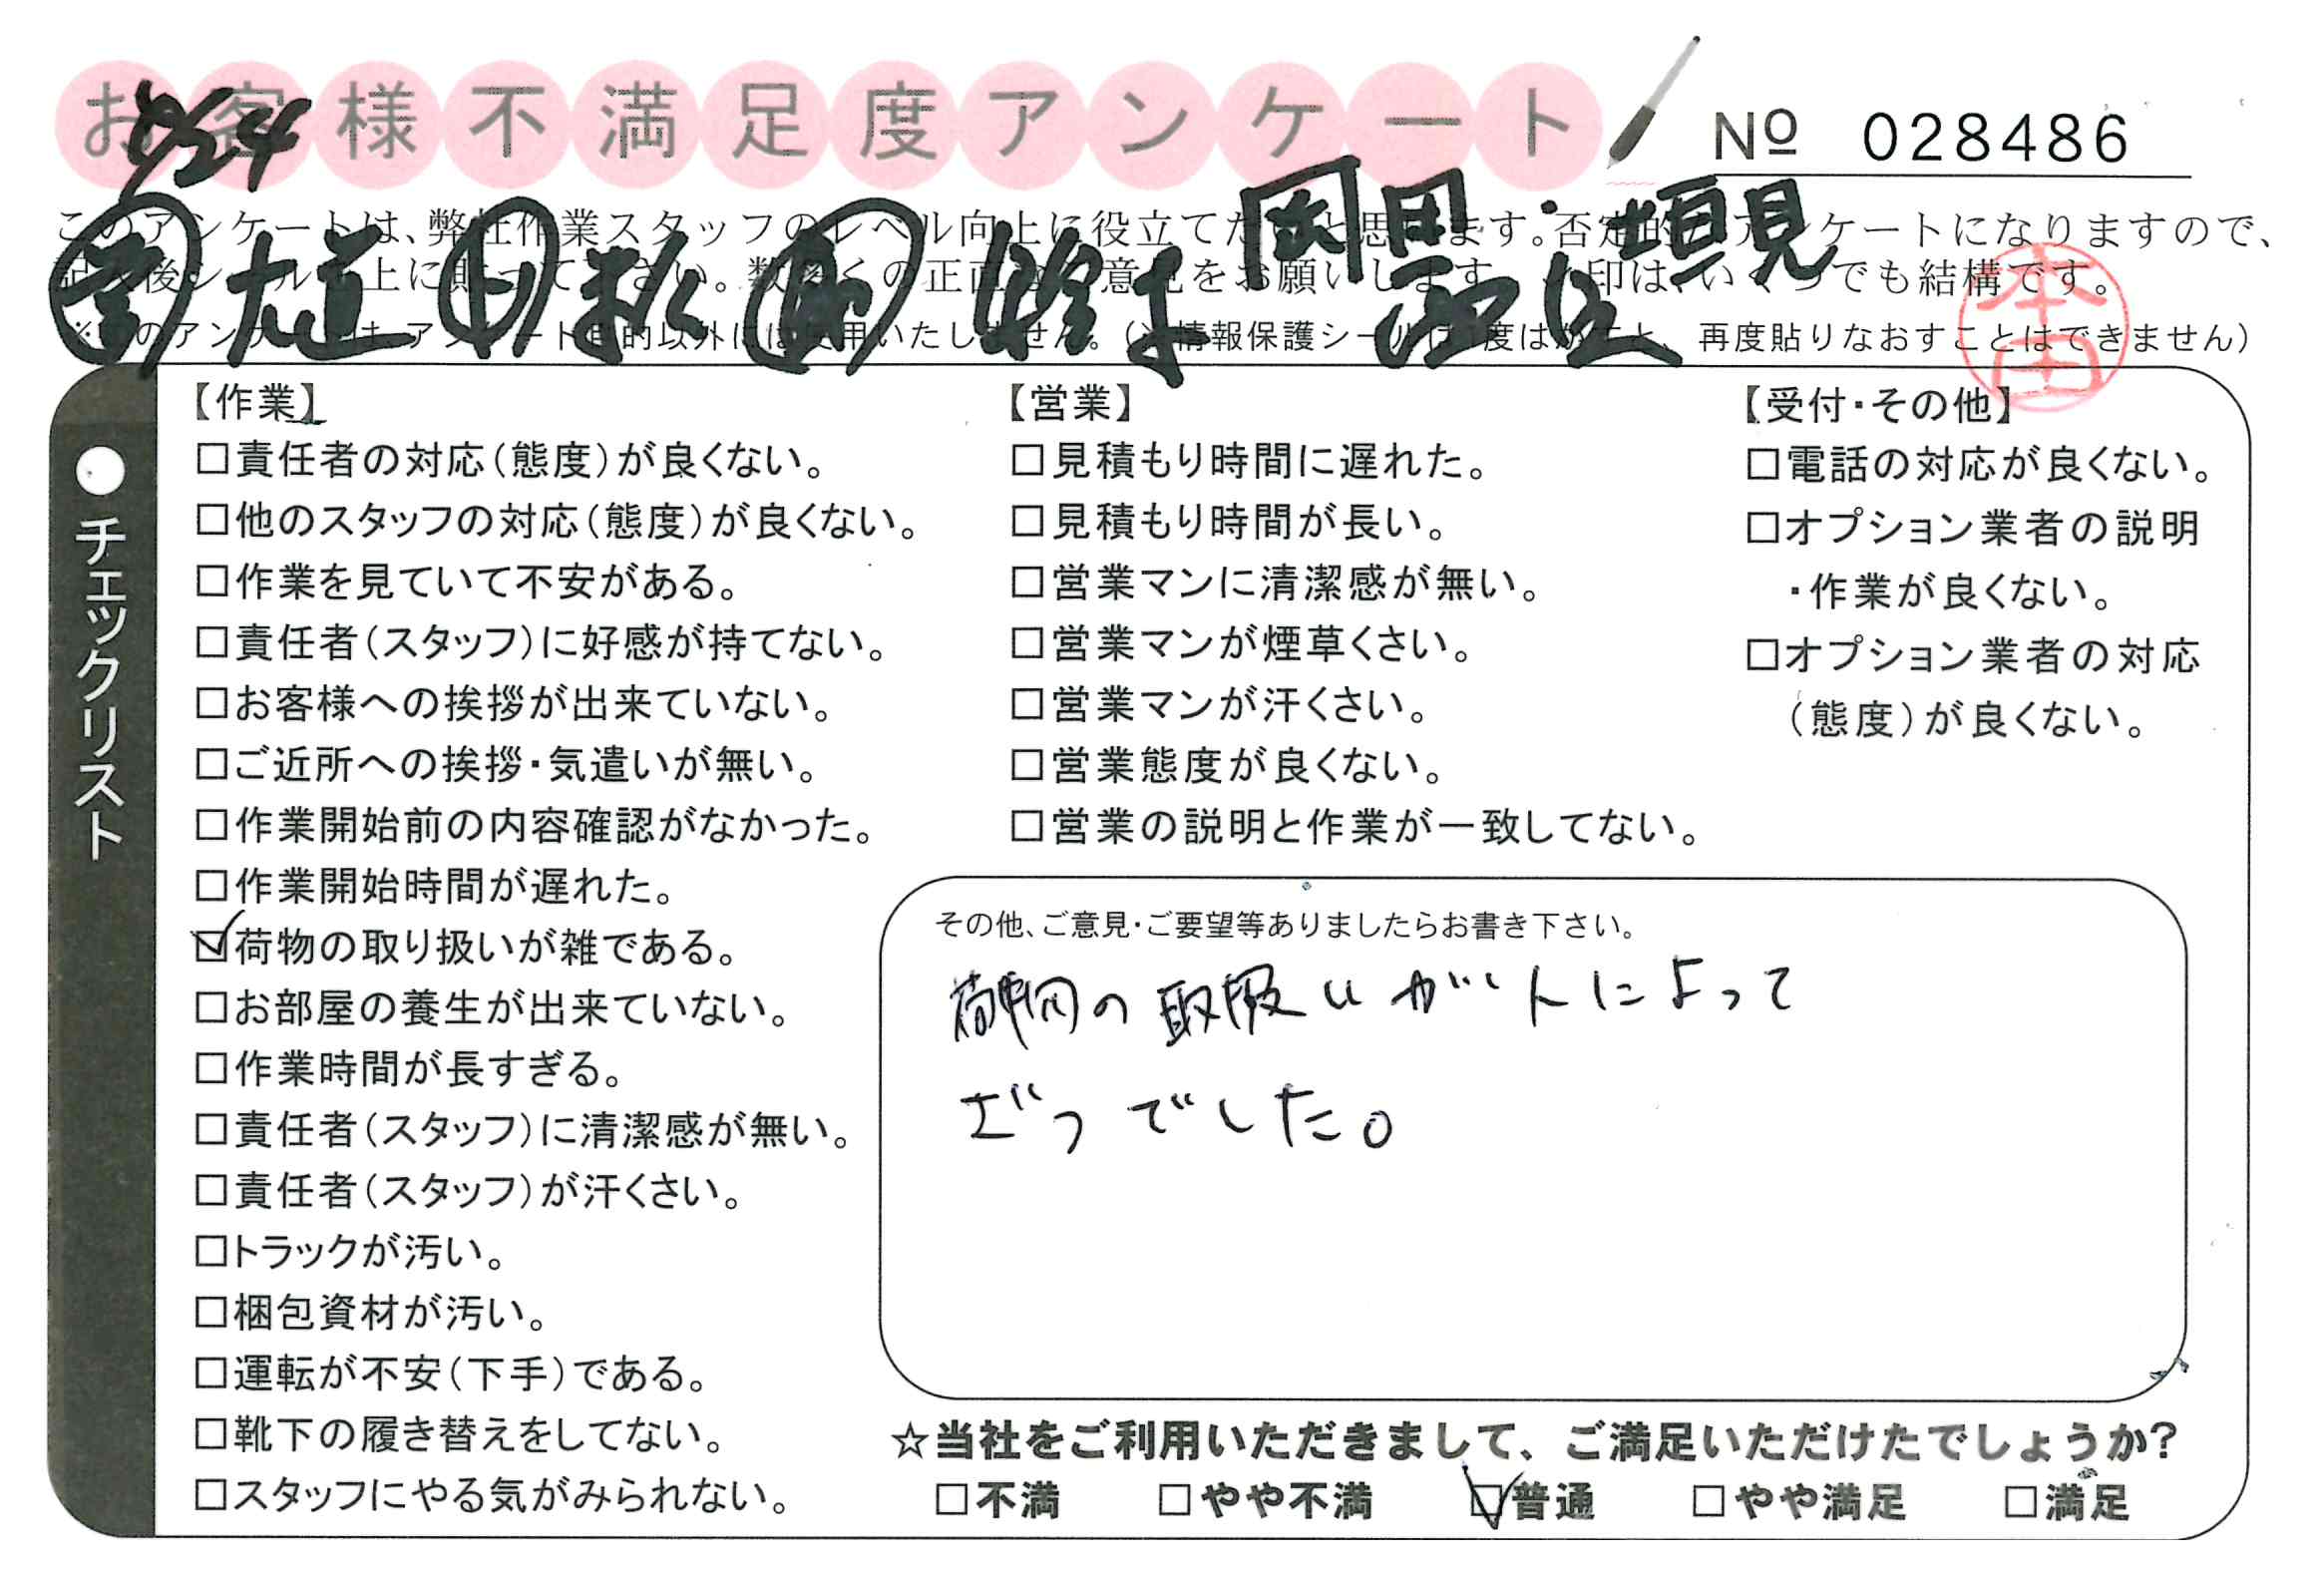 お客様不満足度アンケート
№ 028486
8/24
岡田・塩見
このアンケートは、弊社作業スタッフのレベル向上に役立てたいと思います。否定的なアンケートになりますので、
記入後シールを上に貼って下さい。数多くの正直な意見をお願いします。 印は、いくつでも結構です。
※このアンケートは、アンケート目的以外には使用いたしません。(※情報保護シールは1度はがすと、再度貼りなおすことはできません)
本田
●チェックリスト
【作業】
□責任者の対応(態度)が良くない。
□他のスタッフの対応(態度)が良くない。
□作業を見ていて不安がある。
□責任者(スタッフ)に好感が持てない。
□お客様への挨拶が出来ていない。
□ご近所への挨拶・気遣いが無い。
□作業開始前の内容確認がなかった。
□作業開始時間が遅れた。
☑荷物の取り扱いが雑である。
□お部屋の養生が出来ていない。
□作業時間が長すぎる。
□責任者(スタッフ)に清潔感が無い。
□責任者(スタッフ)が汗くさい。
□トラックが汚い。
□梱包資材が汚い。
□運転が不安(下手)である。
□靴下の履き替えをしてない。
□スタッフにやる気がみられない。
【営業】
□見積もり時間に遅れた。
□見積もり時間が長い。
□営業マンに清潔感が無い。
□営業マンが煙草くさい。
□営業マンが汗くさい。
□営業態度が良くない。
□営業の説明と作業が一致してない。
【受付・その他】
□電話の対応が良くない。
□オプション業者の説明
・作業が良くない。
□オプション業者の対応
(態度)が良くない。
その他、ご意見・ご要望等ありましたらお書き下さい。
荷物の取扱いが人によって
ざつでした。
☆当社をご利用いただきまして、ご満足いただけたでしょうか?
□不満 □やや不満 ☑普通 □やや満足 □満足